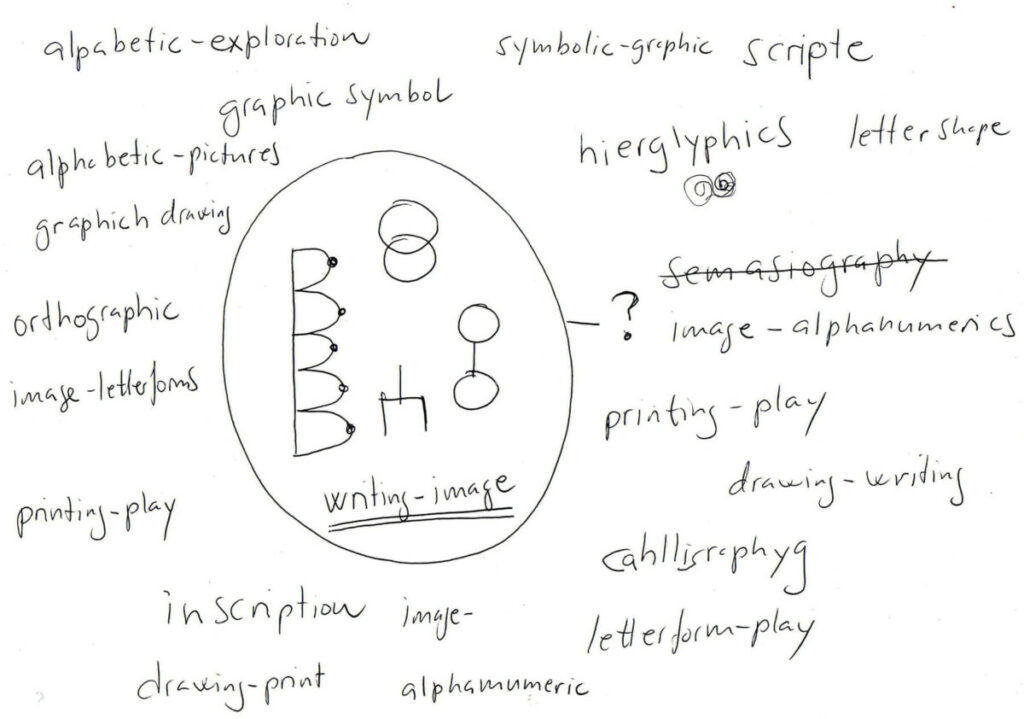 alpabetic-exploration
symbolic-graphic
scripte
graphic symbol
hierglyphics
lettershape
alphabetic-pictures
graphich drawing
semasiography
orthographic
?
image-alphanumerics
image-letterforms
printing-play
drawing-writing
writing-image
printing-play
cahlligraphyg
inscription
image-
letterform-play
drawing-print
alphamumeric